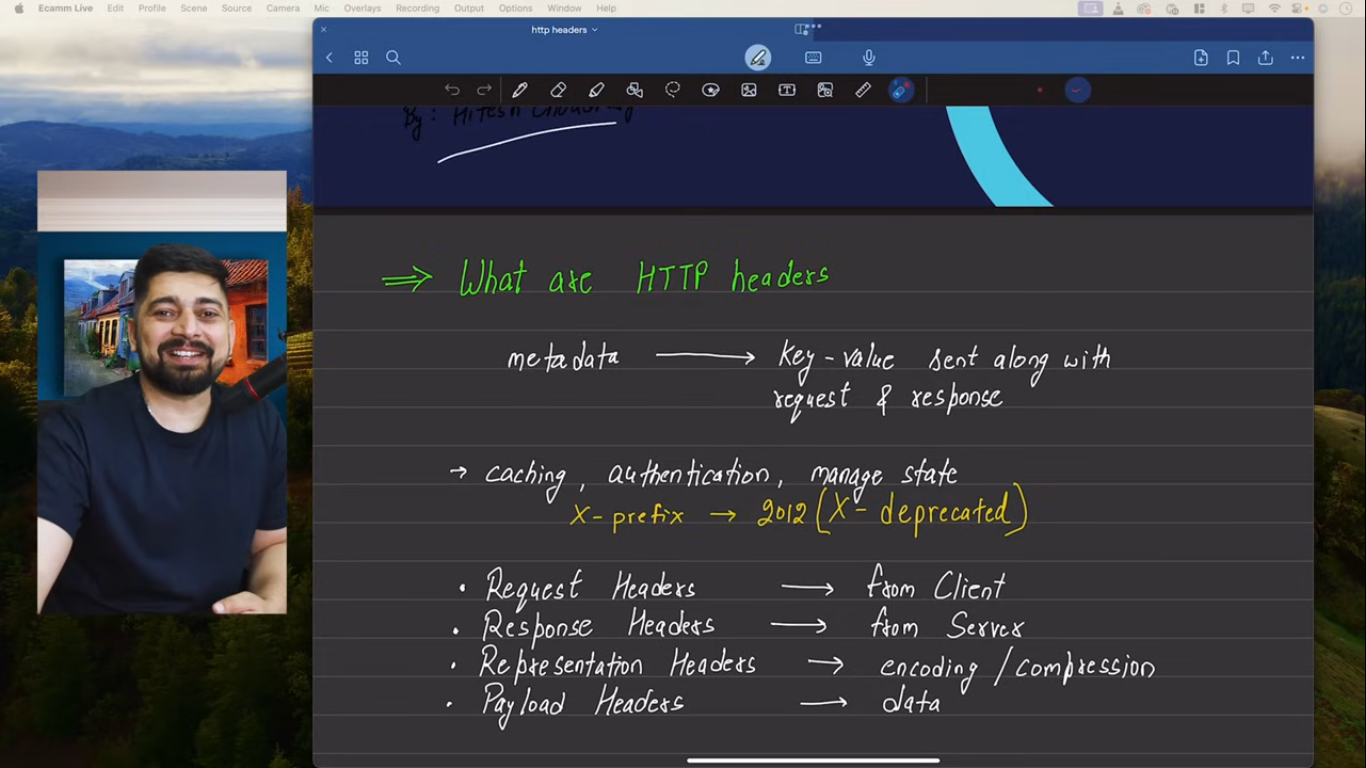 Ecamm Live Edit Profile Scene Source Camera Mic Overlays Recording Output Options Window Help
http headers
By: Hitesh Choudhary
⇒ What are HTTP headers
metadata → key-value sent along with
request & response
→ caching, authentication, manage state
X-prefix → 2012 (X- deprecated)
• Request Headers → from Client
• Response Headers → from Server
• Representation Headers → encoding/compression
• Payload Headers → data